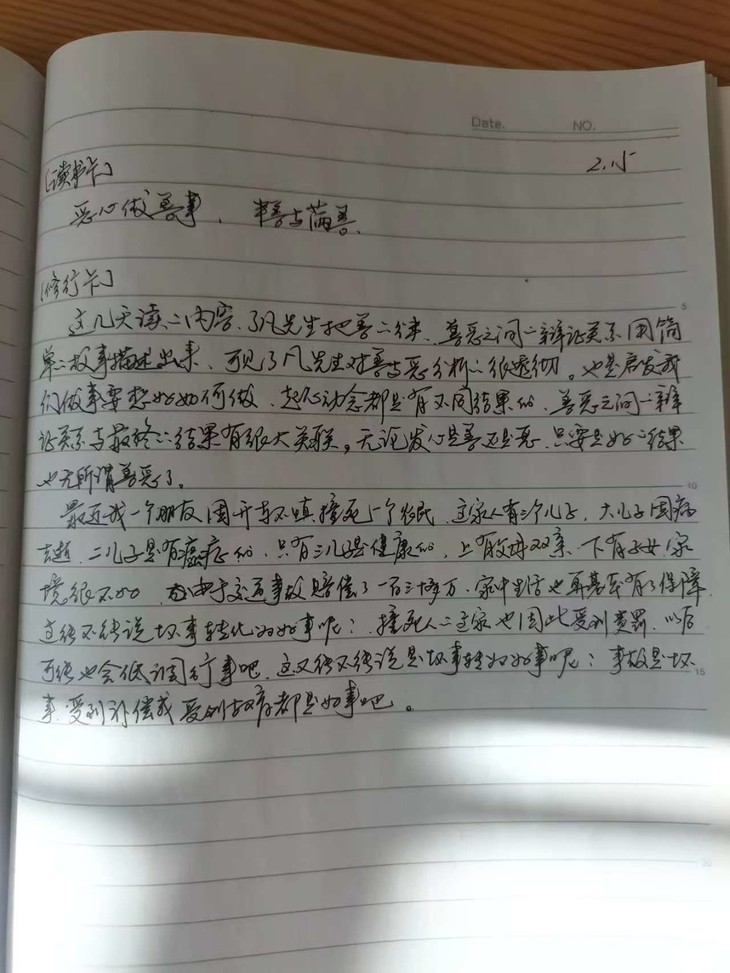 Date. NO.
2.15
[读书卡]
恶心做善事、半善与满善。
[修行卡]
这几天读的内容、了凡先生把善的分类、善恶之间的辩证关系用简
单的故事描述出来、可见了凡先生对善与恶分析的很透彻。也是启发我
们做事要想好如何做、起心动念都是有不同结果的、善恶之间的辩
证关系与最终的结果有很大关联。无论发心是善还是恶、只要是好的结果
也无所谓善恶了。
最近我一个朋友因开车不慎撞死一个农民、这家人有三个儿子、大儿子因病
去逝、二儿子是有癌症的、只有三儿子是健康的、上有父母双亲、下有子女、家
境很不好、由于交通事故赔偿了一百三十多万、家中生活也再甚至有了保障
这能不能说坏事转化为好事呢？撞死人的这家也因此受到责罚、以后
可能也会低调行事吧、这又能不能说是坏事转为好事呢？事故是坏
事、受到补偿或受到教育都是好事吧。
5
10
15
20